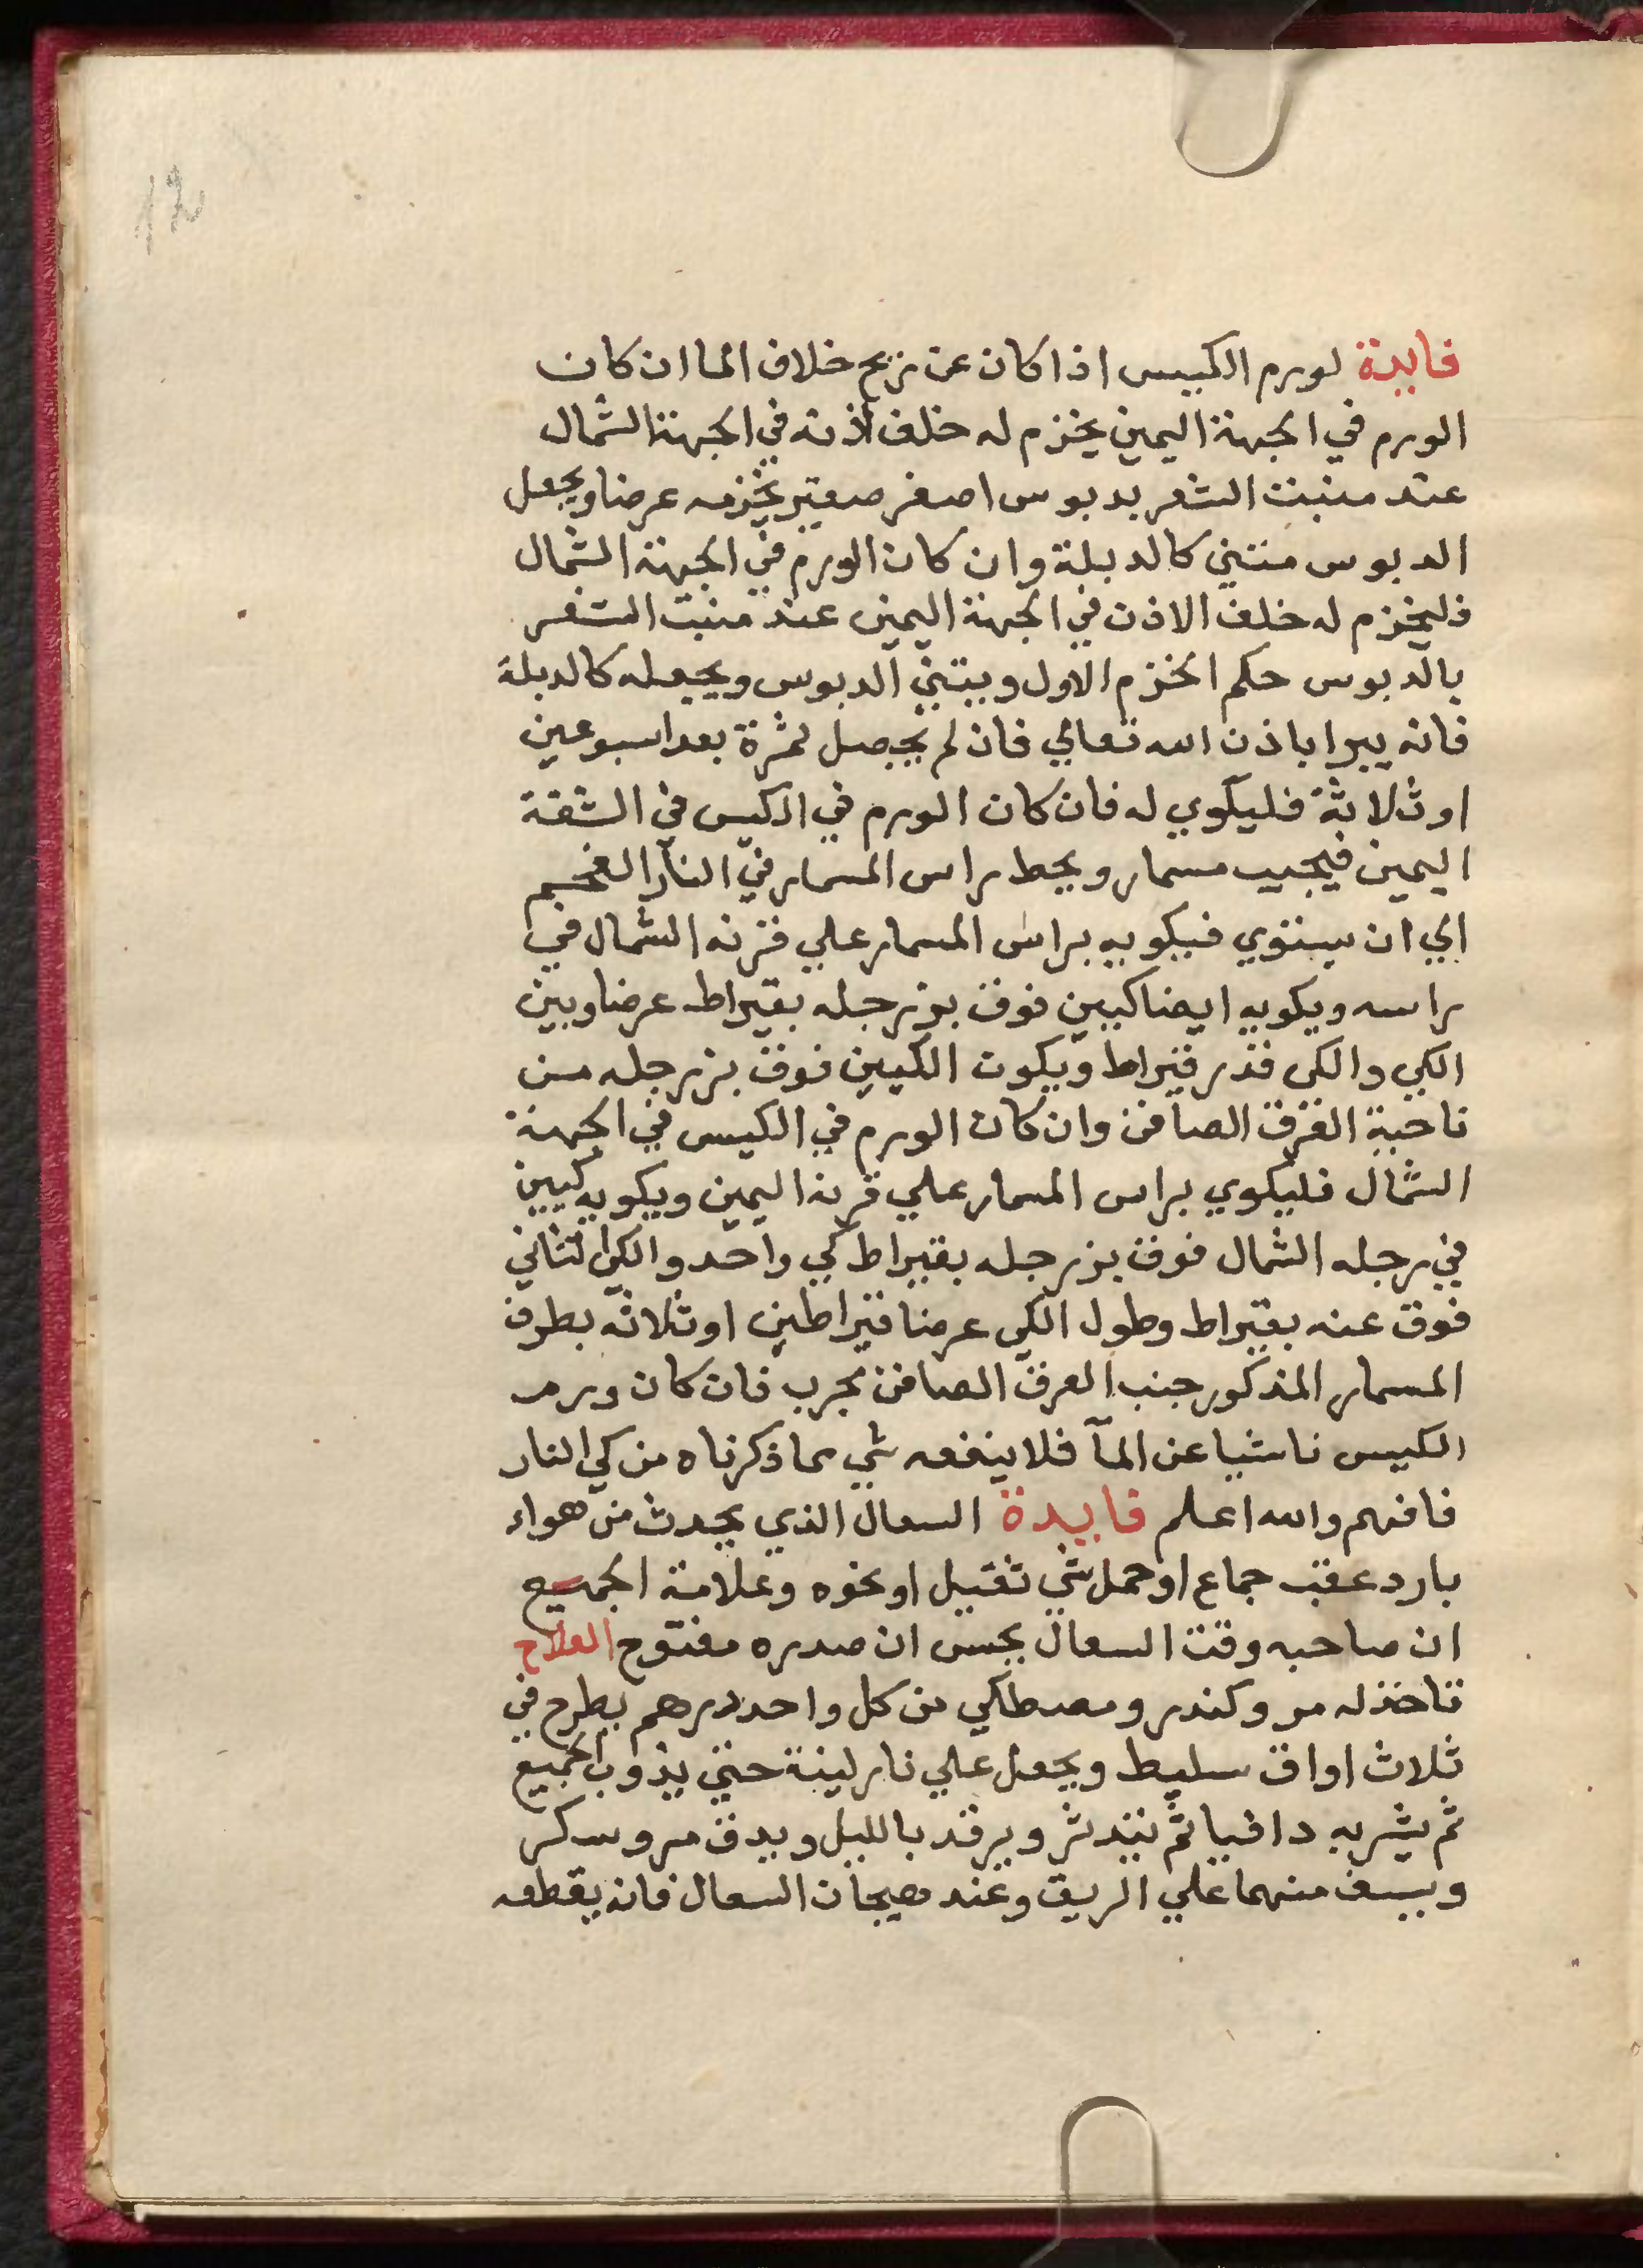 12
فايدة لورم الكييس اذا كان عن ريح خلاف الما ان كان
الورم في الجهة اليمين يخزم له خلف اذنه في الجهة الشمال
عند منبت الشعر بدبوس اصفر صغير يخزمه عرضا ويجعل
الدبوس منتني كالدبلة وان كان الورم في الجهة الشمال
فليخزم له خلف الاذن في الجهة اليمين عند منبت الشعر
بالدبوس حكم الخزم الاول ويتني الدبوس ويجعله كالدبلة
فانه يبرا باذن الله تعالي فان لم يحصل ثمرة بعد اسبوعين
او ثلاثة فليكوي له فان كان الورم في الكيس في الشقة
اليمين فيجيب مسمار ويحط راس المسمار في النار الفحم
الي ان يستوي فيكويه براس المسمار علي قرنه الشمال في
راسه ويكويه ايضا كيين فوق بز رجله بقيراط عرضا وبين
الكي والكي قدر قيراط ويكون الكيين فوق بز رجله من
ناحية العرق الصافن وان كان الورم في الكيس في الجهة
الشمال فليكوي براس المسمار علي قرنه اليمين ويكويه كيين
في رجله الشمال فوق بز رجله بقيراط كي واحد والكي الثاني
فوق عنه بقيراط وطول الكي عرضا قيراطين او ثلاثه بطرف
المسمار المذكور جنب العرق الصافن مجرب فان كان ورم
الكييس ناشيا عن المآ فلا ينفعه شي مما ذكرناه من كي النار
فافهم والله اعلم فايدة السعال الذي يحدث من هواء
بارد عقب جماع او حمل شي ثقيل او نحوه وعلامة الجميع
ان صاحبه وقت السعال يحس ان صدره مفتوح العلاج
تاخذ له مر وكندر ومصطكي من كل واحد درهم يطرح في
ثلاث اواق سليط ويجعل علي نار لينة حتي يذوب الجميع
ثم يشربه دافيا ثم يتدثر ويرقد بالليل ويدق مر وسكر
ويسف منهما علي الريق وعند هيجان السعال فانه يقطعه